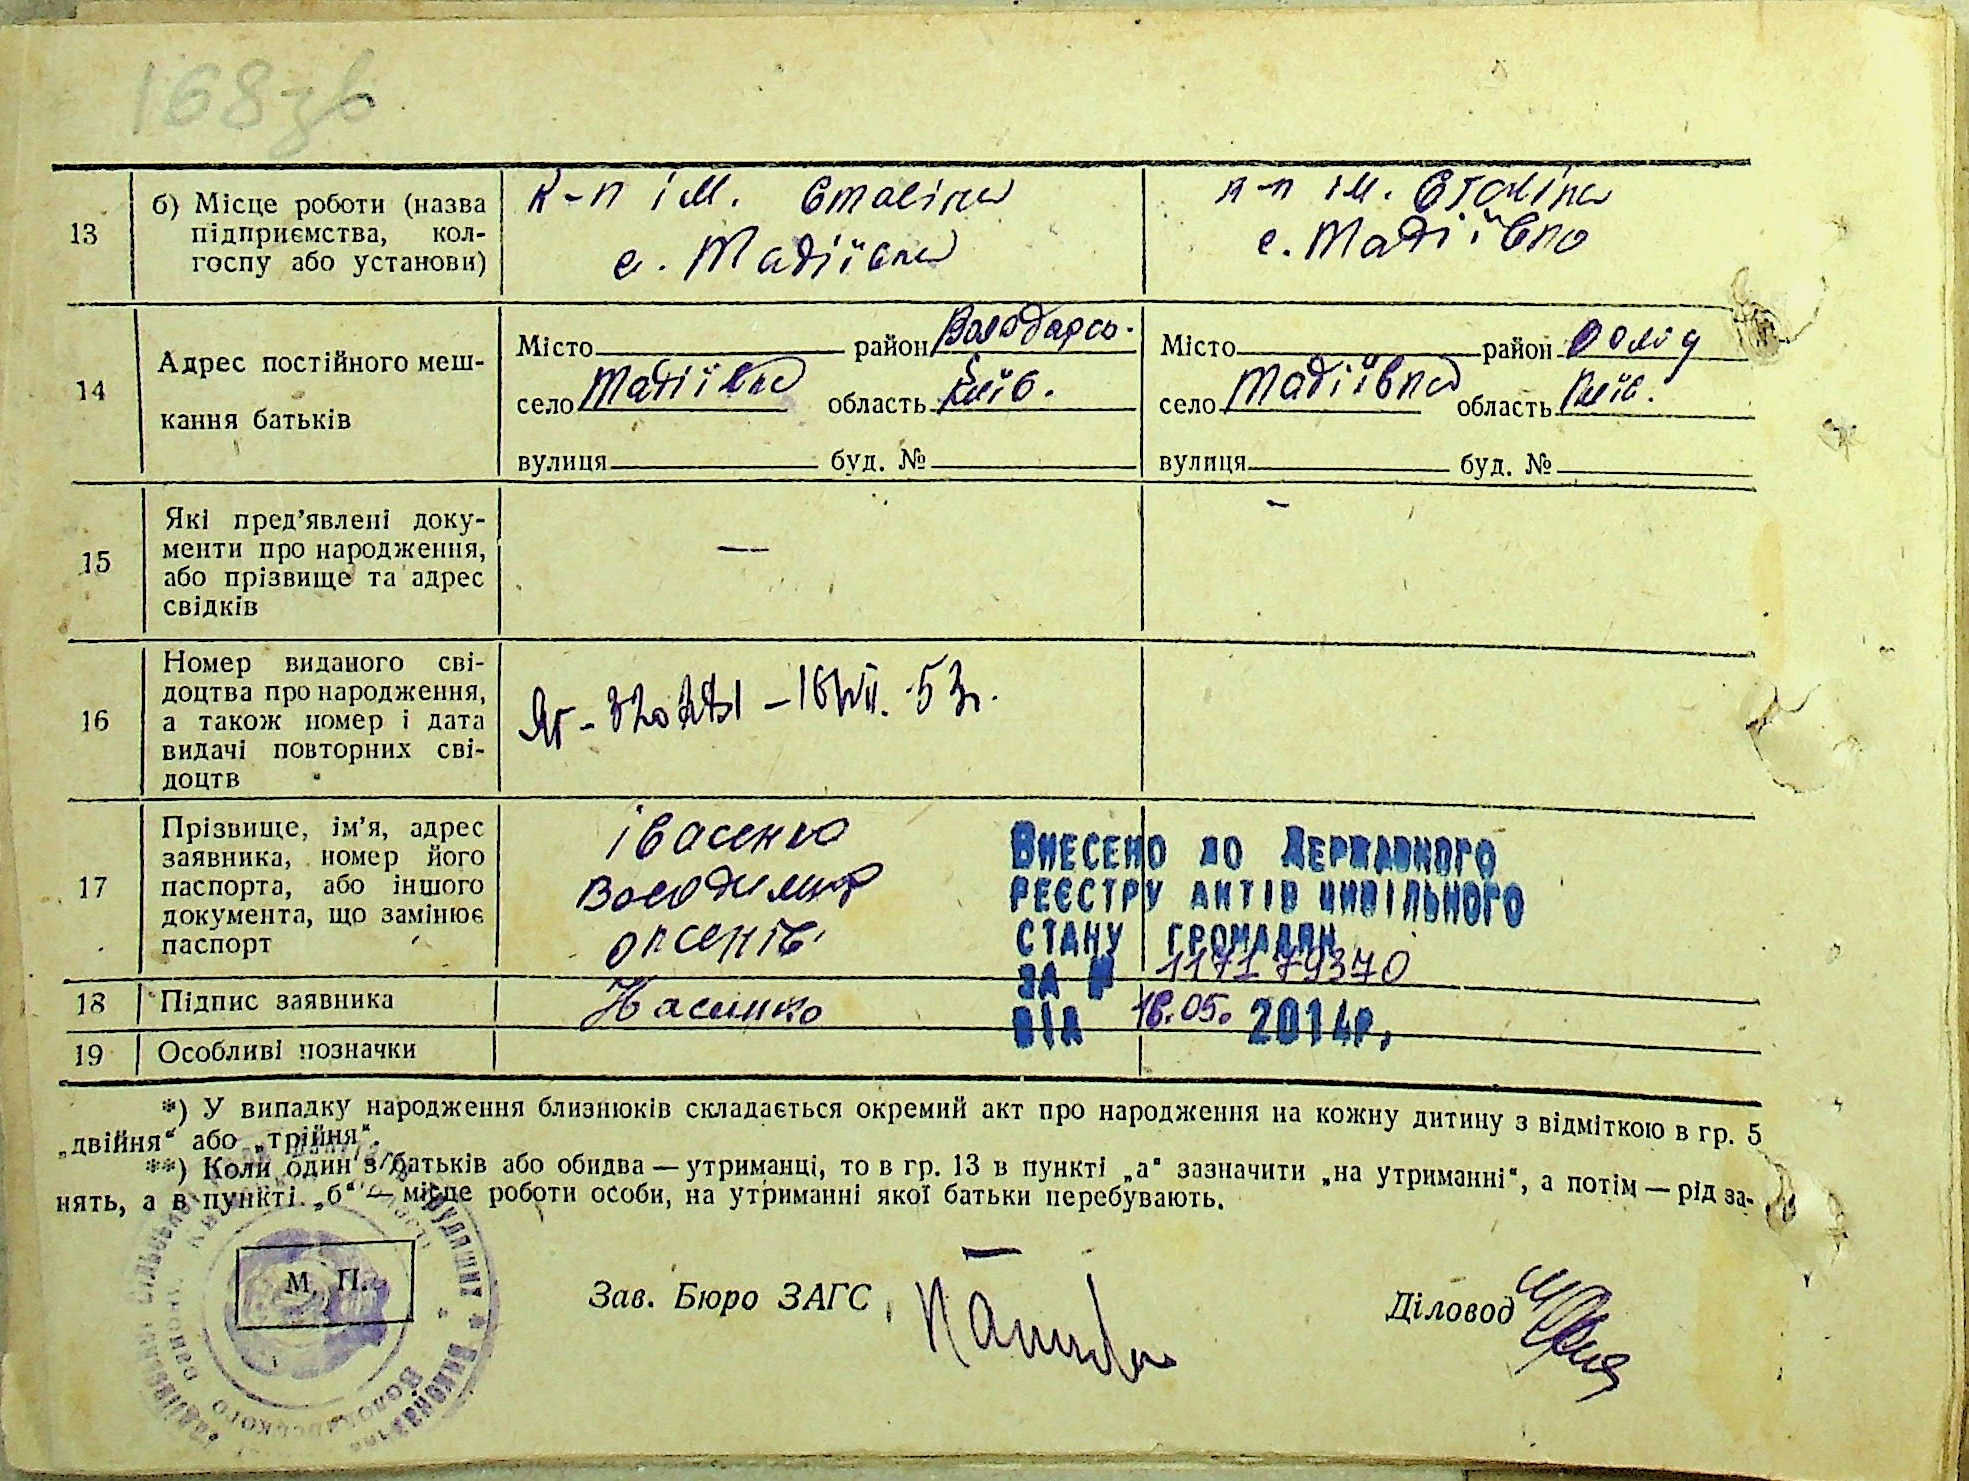 168зв
13
б) Місце роботи (назва
підприємства, кол-
госпу або установи)
к-п ім. Сталіна
с. Тадіївка
к-п ім. Сталіна
с. Тадіївка
14
Адрес постійного меш-
кання батьків
Місто район Володарсь.
село Тадіївка область Київ.
вулиця буд. №
Місто район Волод
село Тадіївка область Київ.
вулиця буд. №
15
Які пред’явлені доку-
менти про народження,
або прізвище та адрес
свідків
—
–
16
Номер виданого сві-
доцтва про народження,
а також номер і дата
видачі повторних сві-
доцтв
53р.
17
Прізвище, ім’я, адрес
заявника, номер його
паспорта, або іншого
документа, що замінює
паспорт
Івасенко
Володимир
Внесено до Державного
реєстру актів цивільного
стану громадян
за № 1171 79370
від 16.05. 2014р.
18
Підпис заявника
19
Особливі позначки
*) У випадку народження близнюків складається окремий акт про народження на кожну дитину з відміткою в гр. 5
„двійня“ або „трійня“.
**) Коли один з батьків або обидва — утриманці, то в гр. 13 в пункті „а“ зазначити „на утриманні“, а потім — рід за-
нять, а в пункті „б“ — місце роботи особи, на утриманні якої батьки перебувають.
М. П.
Зав. Бюро ЗАГС
Діловод